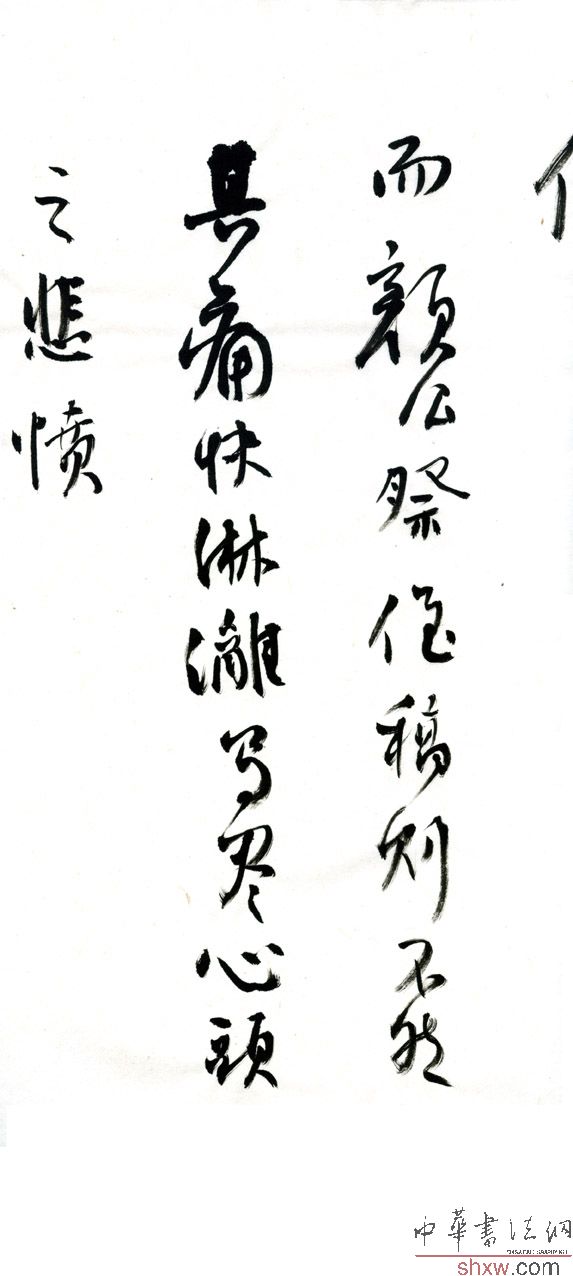 而颜公祭侄稿则不然
其痛快淋漓写尽心頭
之悲愤
中華書法網
shxw.com